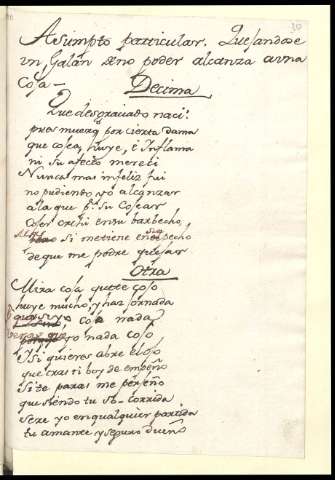 30
Asumpto particular. Quejandose
un Galán de no poder alcanzar a una
Cosa —
Decima
Que desgraciado naci!
pues muero por cierta dama
que cosea, huye, è Inflama
ni su afecto mereci
Nunca mas infeliz fui
no pudiendo yò alcanzar
a la que pr. su Cosear
en su barbecho,
si me tiene en despecho
de que me podrè quejar
Otra
Mira cosa que te coso
huye mucho, y haz jornada
cosa nada
yo nada coso
Y si quieres abre el ojo
que tras ti boy de empeño
Si te paras me perseño
que siendo tu corrida
sere yo en qualquier partida
tu amante, y seguro dueño